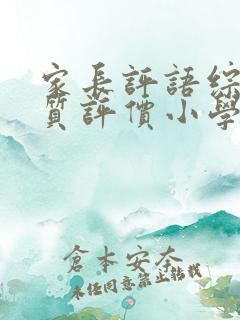 家長評語綜
質評價小學
倉本安奈
未經同意禁止轉載